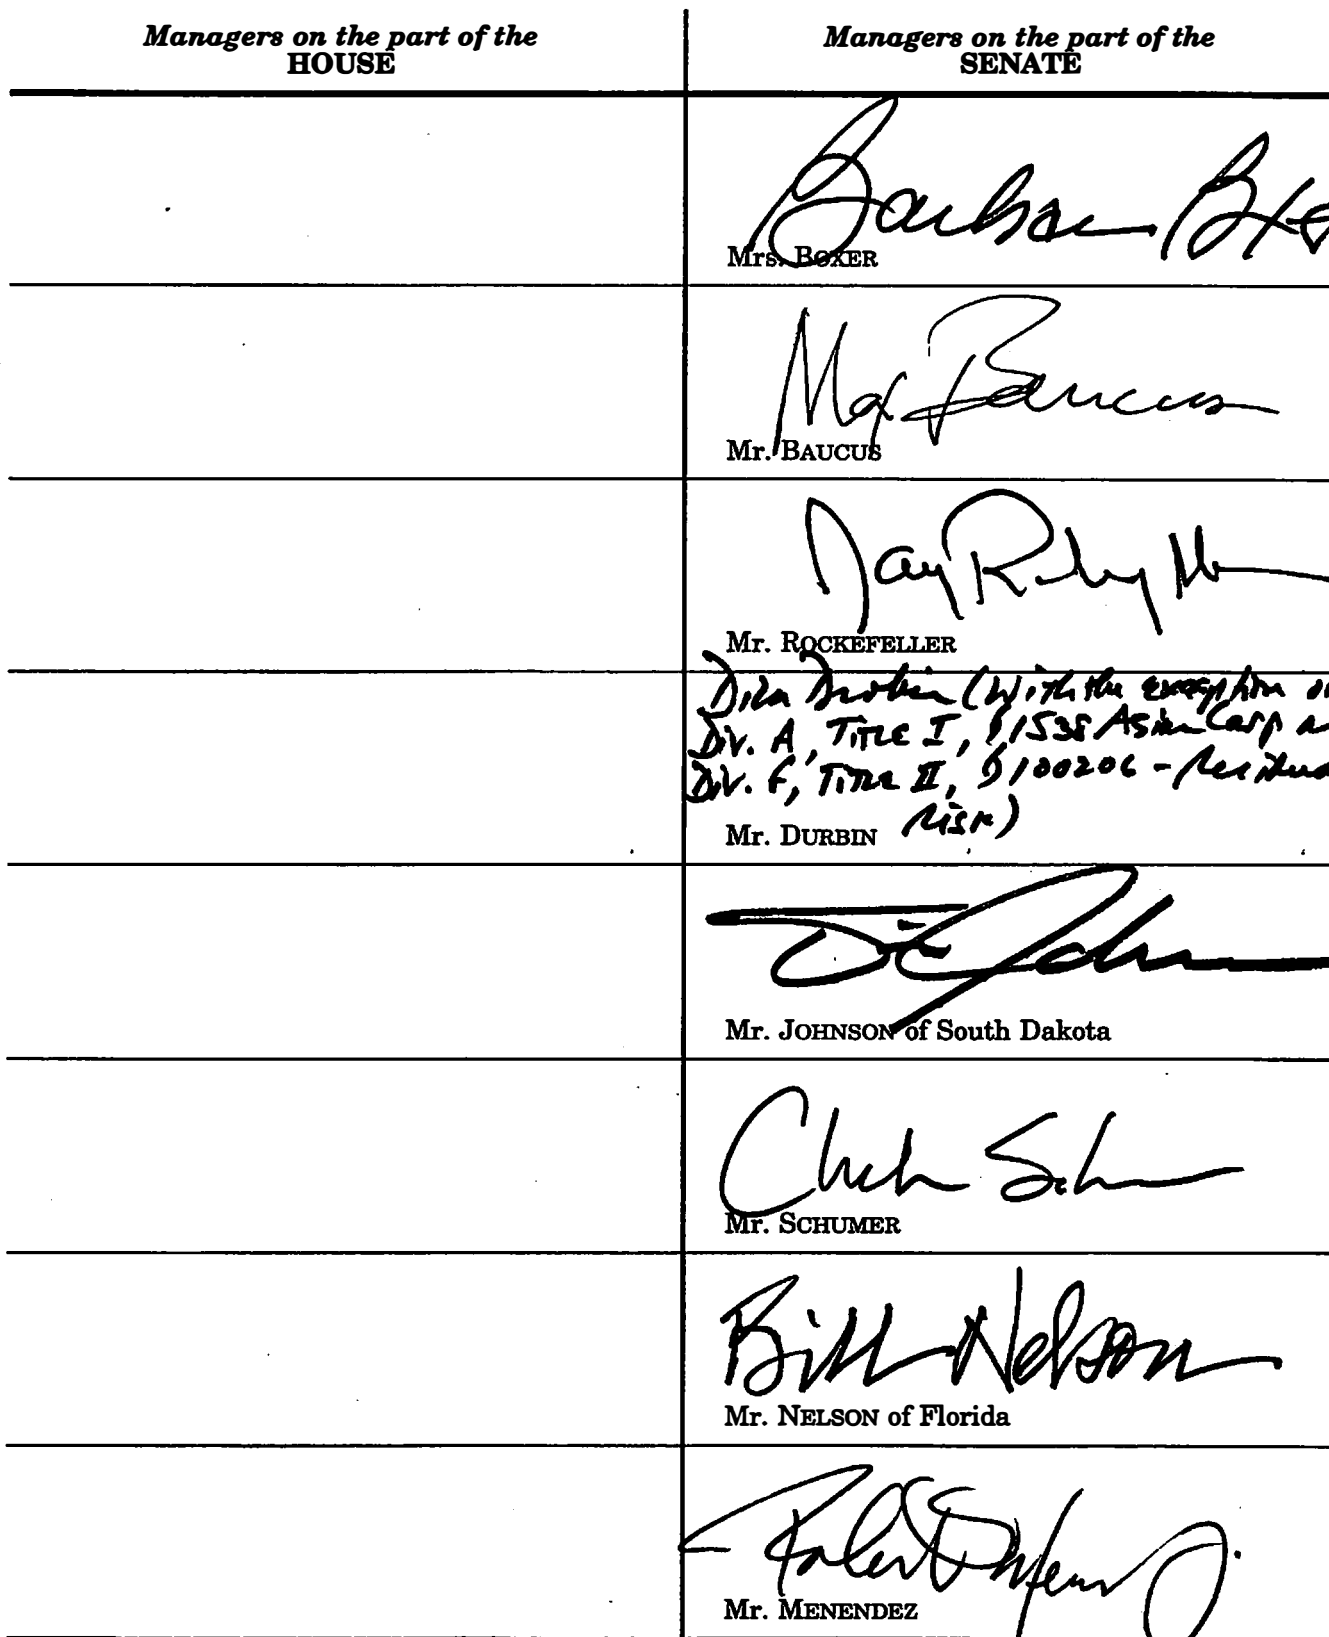 Managers on the part of the
HOUSE
Managers on the part of the
SENATE
Barbara Boxe
Mrs. BOXER
Max Baucus
Mr. BAUCUS
Jay
Mr. ROCKEFELLER
Dick Durbin (with the exception o
Div. A, Title I, §1538 Asian Carp a
Div. F, Title II, §100206 - Residua
risk)
Mr. DURBIN
Tim Johnson
Mr. JOHNSON of South Dakota
Chuck
Mr. SCHUMER
Bill Nelson
Mr. NELSON of Florida
Robert
Mr. MENENDEZ